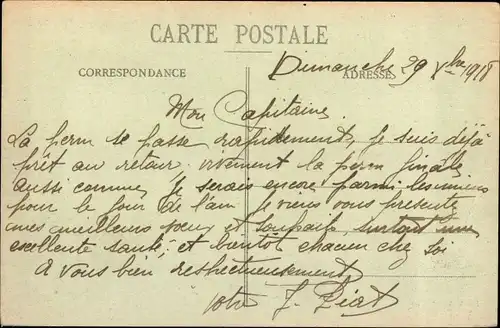 CARTE POSTALE
CORRESPONDANCE
ADRESSE
Dimanche 29 Xbre 1918
Mon Capitaine
La perm se passe rapidement, je suis déjà
prêt au retour, vivement la perm finale
aussi comme je serais encore parmi les miens
pour le jour de l'an je viens vous présente
mes meilleurs vœux et souhaits, surtout une
excellente santé, et bientôt chacun chez soi
A vous bien respectueusement
votre J.